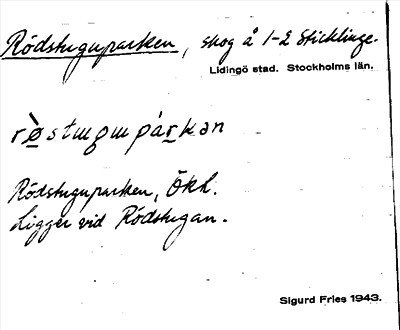 Rödstuguparken, skog å 1-2 Sticklinge.
Lidingö stad. Stockholms län.
rø̀stɯgɯpárkan
Rödstuguparken, Ökk.
Ligger vid Rödstugan.
Sigurd Fries 1943.